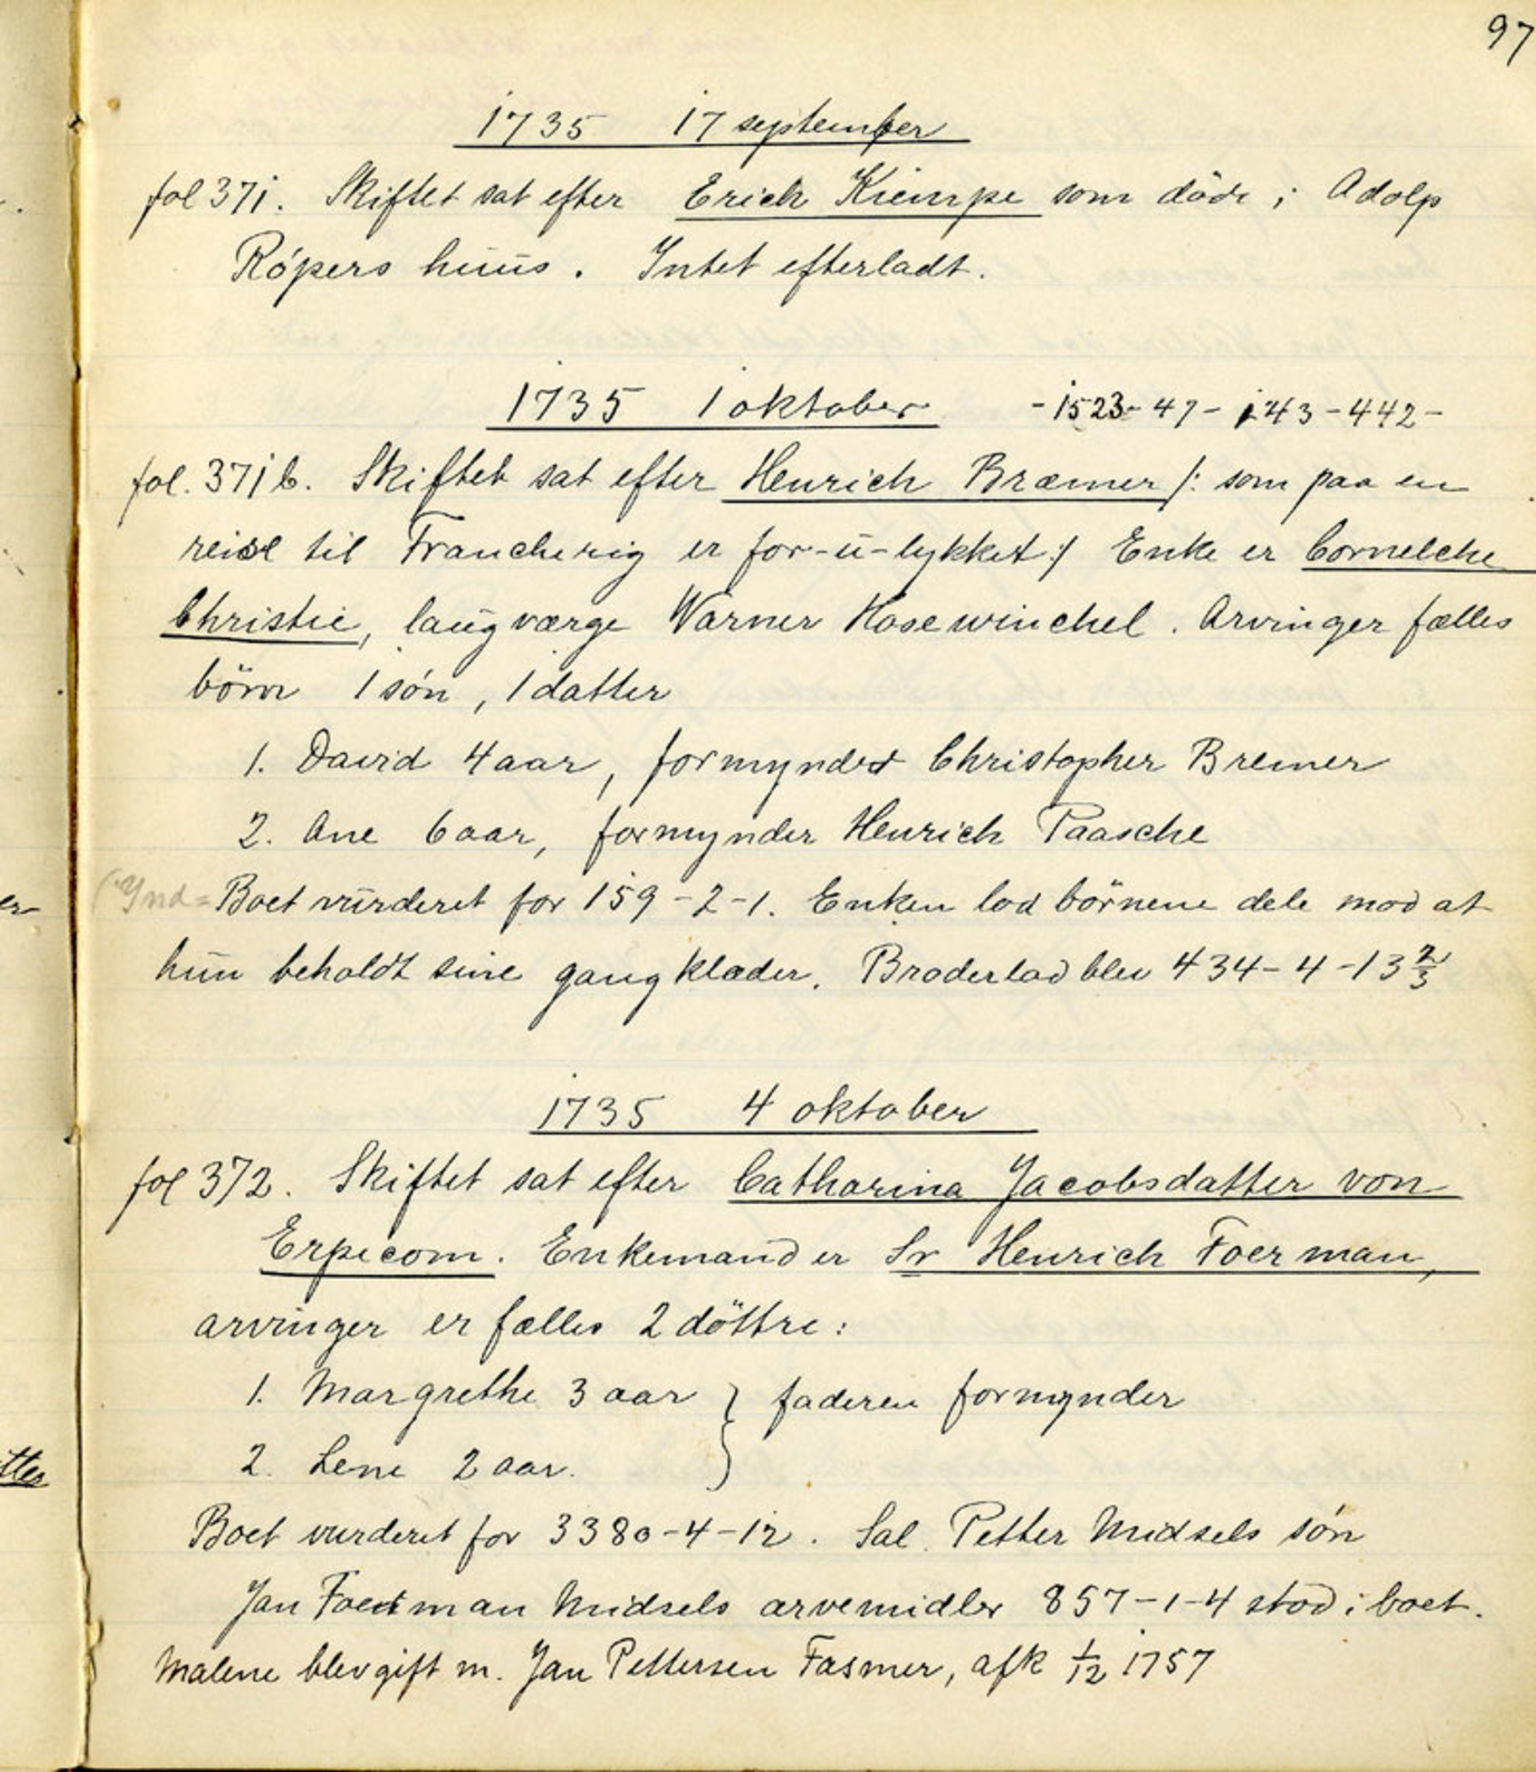 97
1735 17 september
fol 371. Skiftet sat efter Erich Kiempe som döde i Adolp
Röpers huus. Intet efterladt.
1735 1 oktober -1523-47-143-442-
fol. 371 b. Skiftet sat efter Henrich Bræmer /: som paa en
reise til Franckerig er for-u-lykket :/ Enke er Cornelche
Christie, laugværge Warner Hosewinckel. Arvinger fælles
börn 1 són, 1 datter
1. David 4 aar, formynder Christopher Bremer
2. Ane 6 aar, formynder Henrich Paasche
Boet vurderet for 159-2-1. Enken lod börnene dele mod at
hun beholdt sine gangklæder. Broderlod blev 434-4-13 2/3
1735 4 oktober
fol 372. Skiftet sat efter Catharina Jacobsdatter von
Erpecom. Enkemand er Sr Henrich Foerman,
arvinger er fælles 2 döttre:
1. Margrethe 3 aar } faderen formynder
2. Lene 2 aar.
Boet vurderet for 3380-4-12. Sal. Petter Midsels són
Jan Foerman Midsels arvemidler 857-1-4 stod i boet.
Malene blev gift m. Jan Pettersen Fasmer, afk 1/12 1757